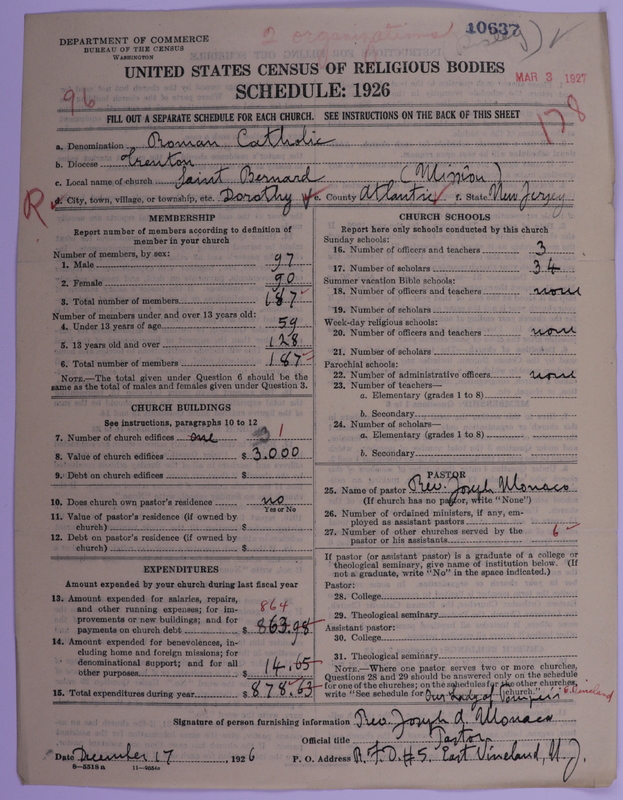 2 organizations
10637
DEPARTMENT OF COMMERCE
BUREAU OF THE CENSUS
WASHINGTON
UNITED STATES CENSUS OF RELIGIOUS BODIES
MAR 3 1927
SCHEDULE: 1926
96
178
FILL OUT A SEPARATE SCHEDULE FOR EACH CHURCH. SEE INSTRUCTIONS ON THE BACK OF THIS SHEET
a. Denomination Roman Catholic
b. Diocese Trenton
c. Local name of church Saint Bernard (Mission)
R
d. City, town, village, or township, etc. Dorothy e. County Atlantic f. State New Jersey
MEMBERSHIP
Report number of members according to definition of
member in your church
Number of members, by sex:
1. Male 97
2. Female 90
3. Total number of members 187
Number of members under and over 13 years old:
4. Under 13 years of age 59
5. 13 years old and over 128
6. Total number of members 187
NOTE.—The total given under Question 6 should be the
same as the total of males and females given under Question 3.
CHURCH BUILDINGS
See instructions, paragraphs 10 to 12
7. Number of church edifices one 1
8. Value of church edifices $ 3.000
9. Debt on church edifices $
10. Does church own pastor's residence no
Yes or No
11. Value of pastor's residence (if owned by
church) $
12. Debt on pastor's residence (if owned by
church) $
EXPENDITURES
Amount expended by your church during last fiscal year
13. Amount expended for salaries, repairs,
and other running expenses; for im-
provements or new buildings; and for
payments on church debt $ 863.98
864
14. Amount expended for benevolences, in-
cluding home and foreign missions; for
denominational support; and for all
other purposes $ 14.65
15. Total expenditures during year $ 878.63
CHURCH SCHOOLS
Report here only schools conducted by this church
Sunday schools:
16. Number of officers and teachers 3
17. Number of scholars 34
Summer vacation Bible schools:
18. Number of officers and teachers none
19. Number of scholars
Week-day religious schools:
20. Number of officers and teachers none
21. Number of scholars
Parochial schools:
22. Number of administrative officers none
23. Number of teachers—
a. Elementary (grades 1 to 8)
b. Secondary
24. Number of scholars—
a. Elementary (grades 1 to 8)
b. Secondary
PASTOR
25. Name of pastor Rev. Joseph Monaco
(If church has no pastor, write "None")
26. Number of ordained ministers, if any, em-
ployed as assistant pastors
27. Number of other churches served by the
pastor or his assistants 6
If pastor (or assistant pastor) is a graduate of a college or
theological seminary, give name of institution below. (If
not a graduate, write "No" in the space indicated.)
Pastor:
28. College
29. Theological seminary
Assistant pastor:
30. College
31. Theological seminary
NOTE.—Where one pastor serves two or more churches,
Questions 28 and 29 should be answered only on the schedule
for one of the churches; on the schedules for the other churches,
write "See schedule for Our Lady of Pompeii church." E. Vineland
Signature of person furnishing information Rev. Joseph A. Monaco
Official title Pastor
Date December 17, 1926 P. O. Address R. F. D. #5. East Vineland, N. J.
8—5518a 11—9051a